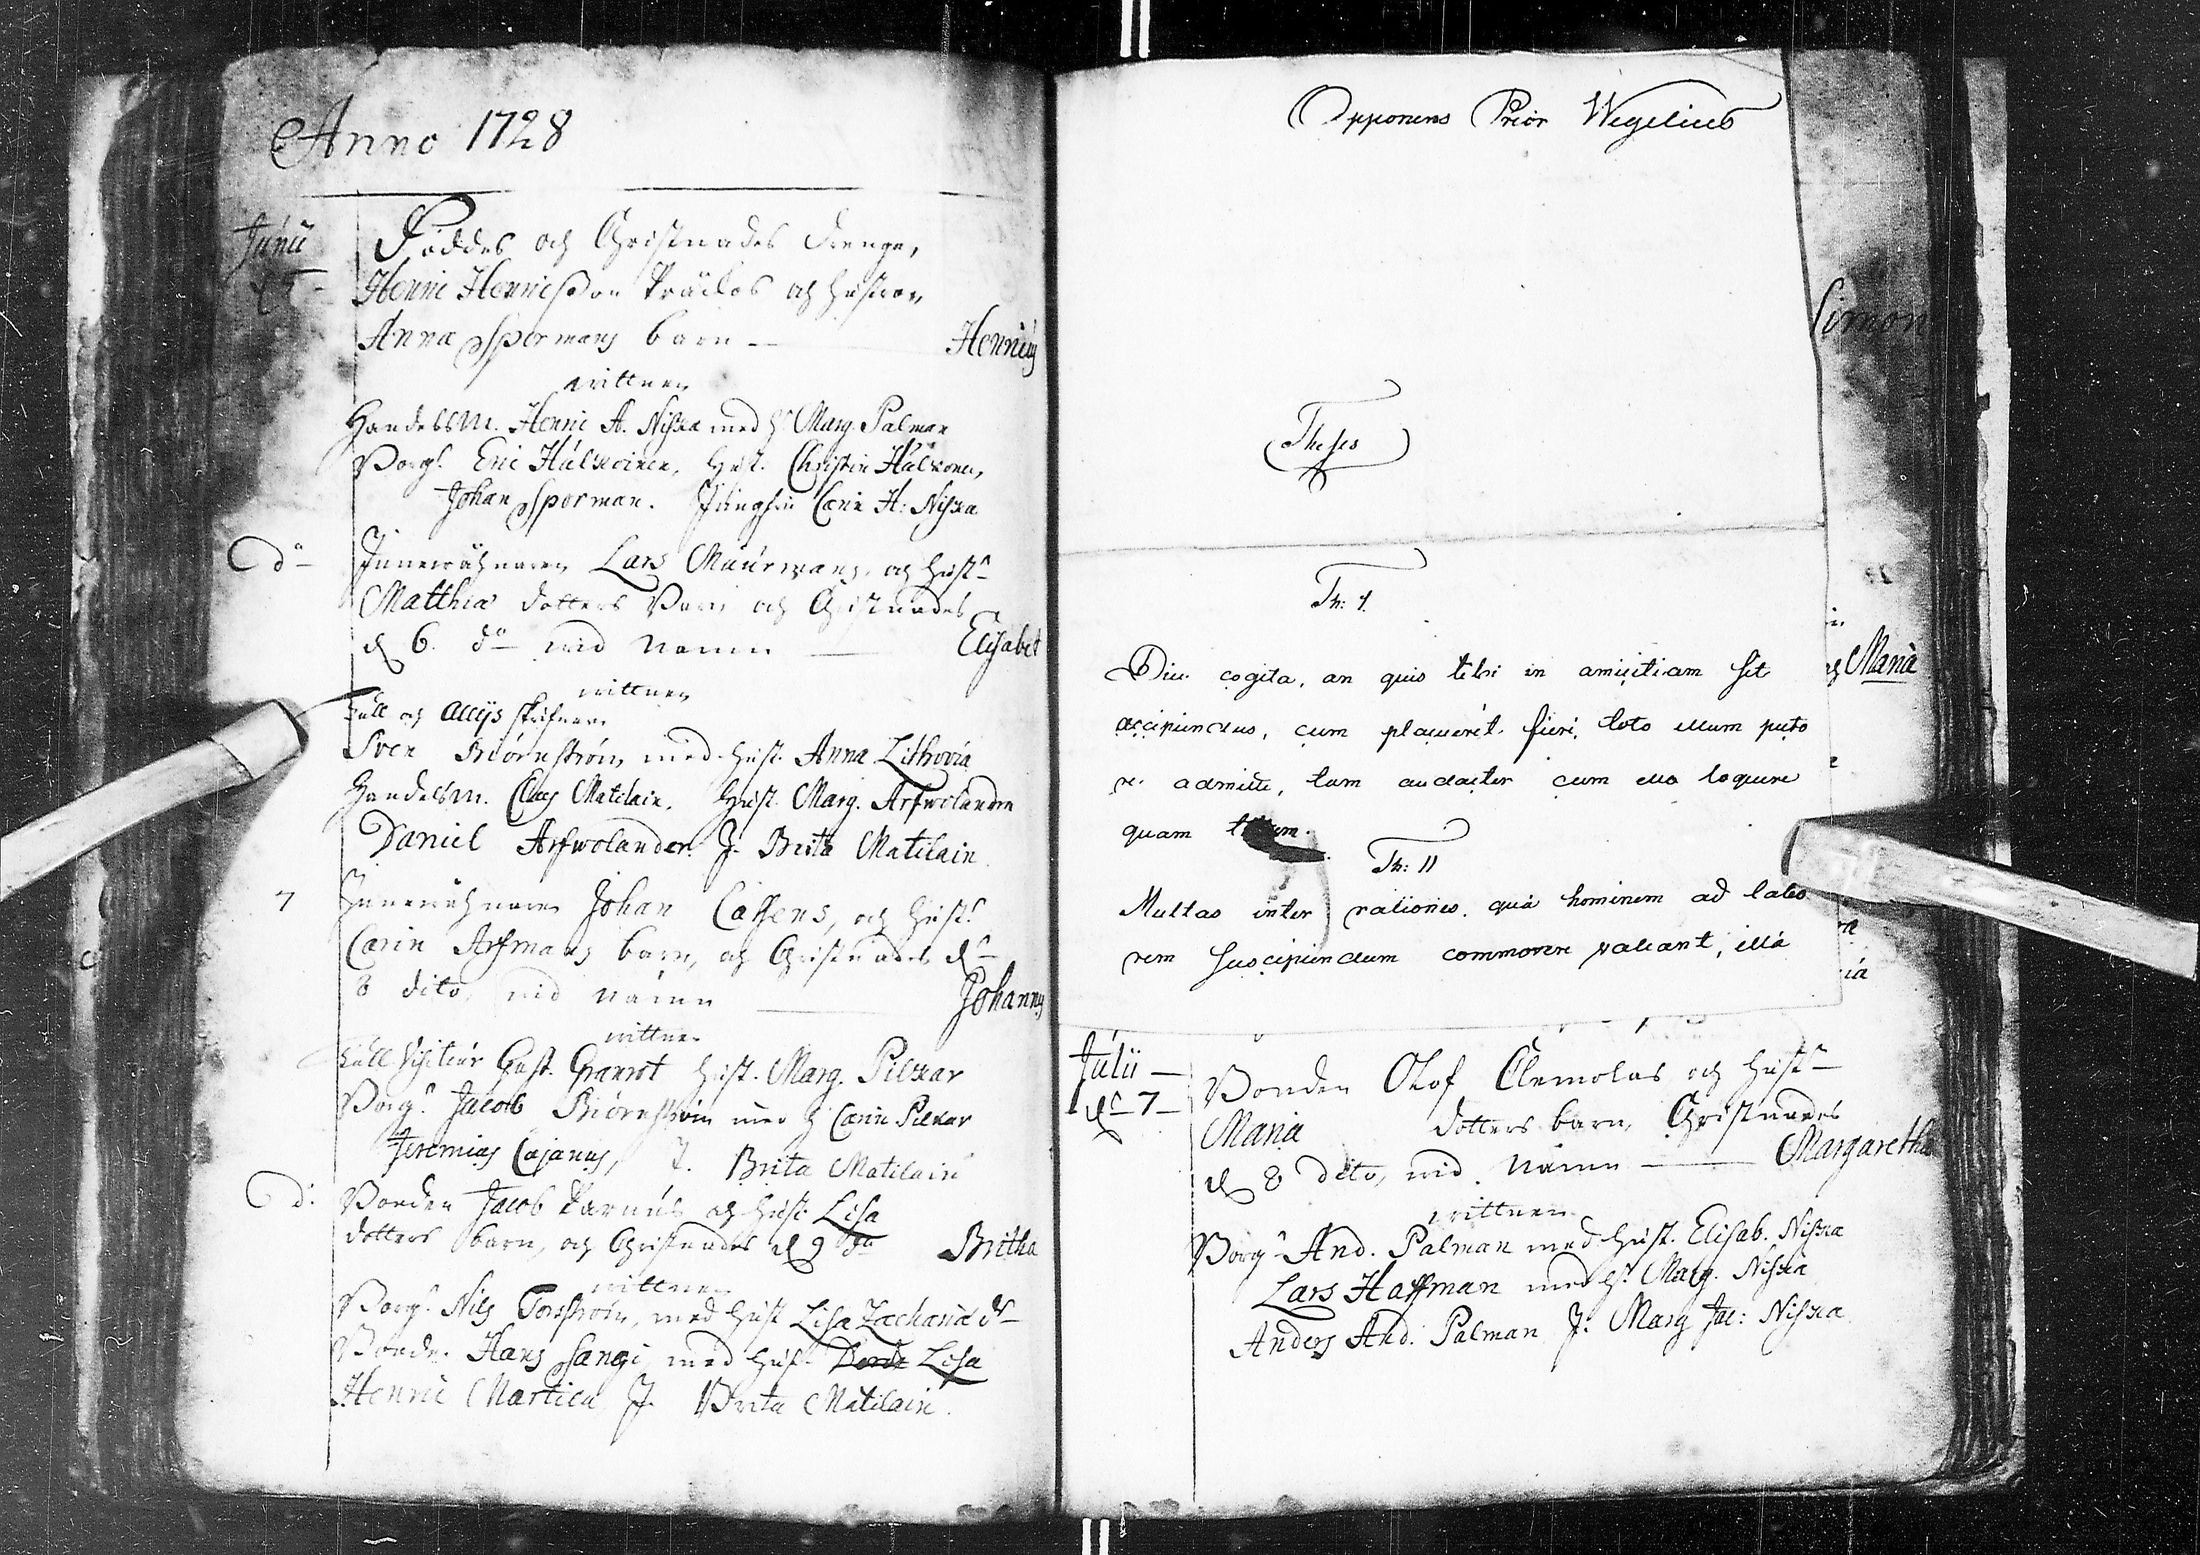 Anno 1728
Junii
Föddes och Christnades
Henric Hennicsson och hustron
Anna Spormans barn — Henricus
wittnen
Handelsm. Henric A. Niska med h. Marg. Palman
Borg. Eric Hulkoinen, Hust. Christin
Johan Sporman. Jungfru Carin H: Niska
do Innewåhnaren Lars och hust.
Matthiæ dotters Barn och Christnades
d 6. do wid Namn — Elisabet
wittnen
Tull och Accijs skrifwaren
Sven Biörnström med hust. Anna Lithovia
Handelsm. Claes Matilain. Hust. Marg. Arfwolander
Daniel Arfwolander. J. Brita Matilain
7 Innewåhnaren Johan Cajsens, och Hust.
Carin Arfmans barn, och Christnades d
8 dito, wid namn — Johannes
wittnen
Tull Visiteur Gust. Granrot Hust. Marg. Pilkar
Borg. Jacob Biörnström med h Carin Pilkar
Jeremias Cajanus, J. Brita Matilain
do Bonden Jacob och hust. Lisa
dotters barn, och Christnades d 9 do Britha
wittnen
Borg. Nils Torström, med hust Lisa Zachariæ dr
Bonden Hans Sangi, med hust. Lisa
Henric Martica J. Brita Matilain.
Opponens Prior Wegelius
Theses
Th: I
Diu cogita, an quis tibi in amicitiam sit
accipiendus, cum placuerit fieri, toto illum pecto
re admitte, tam audacter cum illo loquere
quam tecum.
Th: II
Multas inter rationes, quæ hominem ad labo
rem suscipiendum commovere valeant, illa
Simon
Maria
Julii —
d 7 — Bonden Olof Clemolas och hust
Maria dotters barn, Christnades
d 8 dito, wid Namn — Margaretha
wittnen
Borg And. Palman med hust. Elisab. Niska
Lars Haffman med h. Marg. Niska
Anders And. Palman J. Marg Jac: Niska